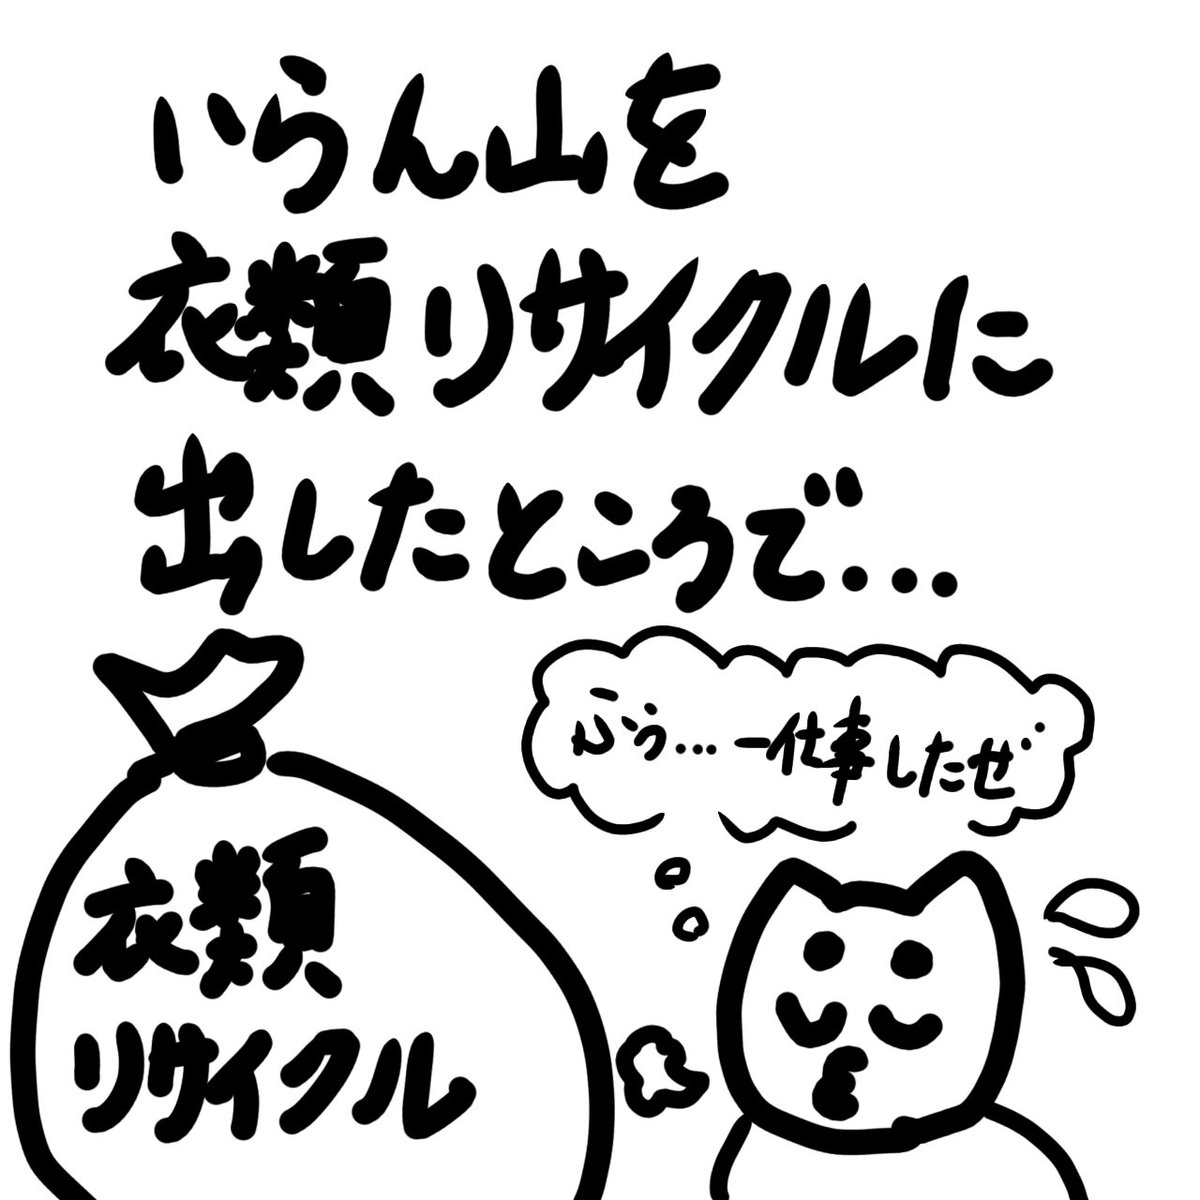 いらん山を
衣類リサイクルに
出したところで...
ふぅ...一仕事したぜ...
衣類
リサイクル